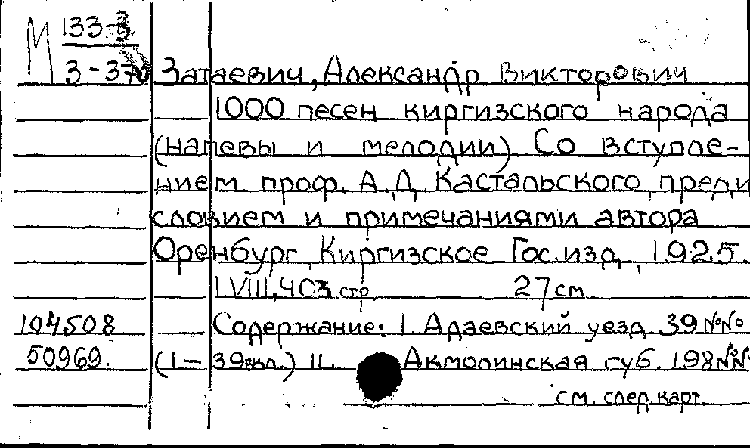 М 133-3
3-370 Затаевич, Александр Викторович
1000 песен киргизского народа
(напевы и мелодии) Со вступле-
нием проф. А.Д. Кастальского, преди
словием и примечаниями автора
Оренбург, Киргизское Гос.изд, 1925.
LVIII, 403 стр. 27 см.
104508 Содержание: I. Адаевский уезд 39 №№
50969. (1-39 вкл.) II. Акмолинская губ. 198 №№
см. след. карт.